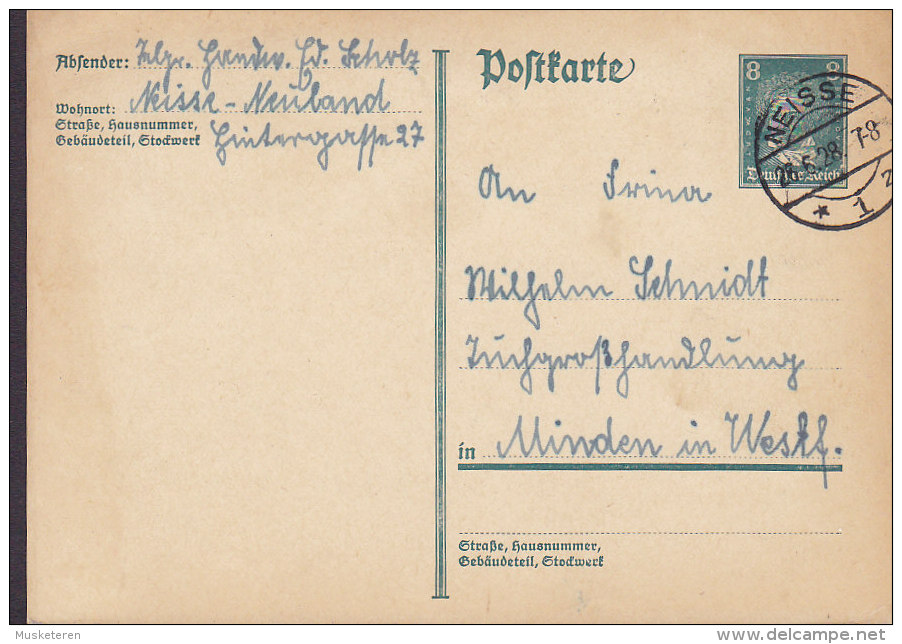 Absender: Handw. Ed. Scholz
Wohnort: Neisse-Neuland
Straße, Hausnummer, Hintergasse 27
Gebäudeteil, Stockwerk
Postkarte
8 8
Deutsches Reich
NEISSE
6.28. 7-8
* 1 z
An Firma
Wilhelm Schmidt
Tuchgroßhandlung
in Minden in Westf.
Straße, Hausnummer,
Gebäudeteil, Stockwerk
Musketeren
delcampe.net